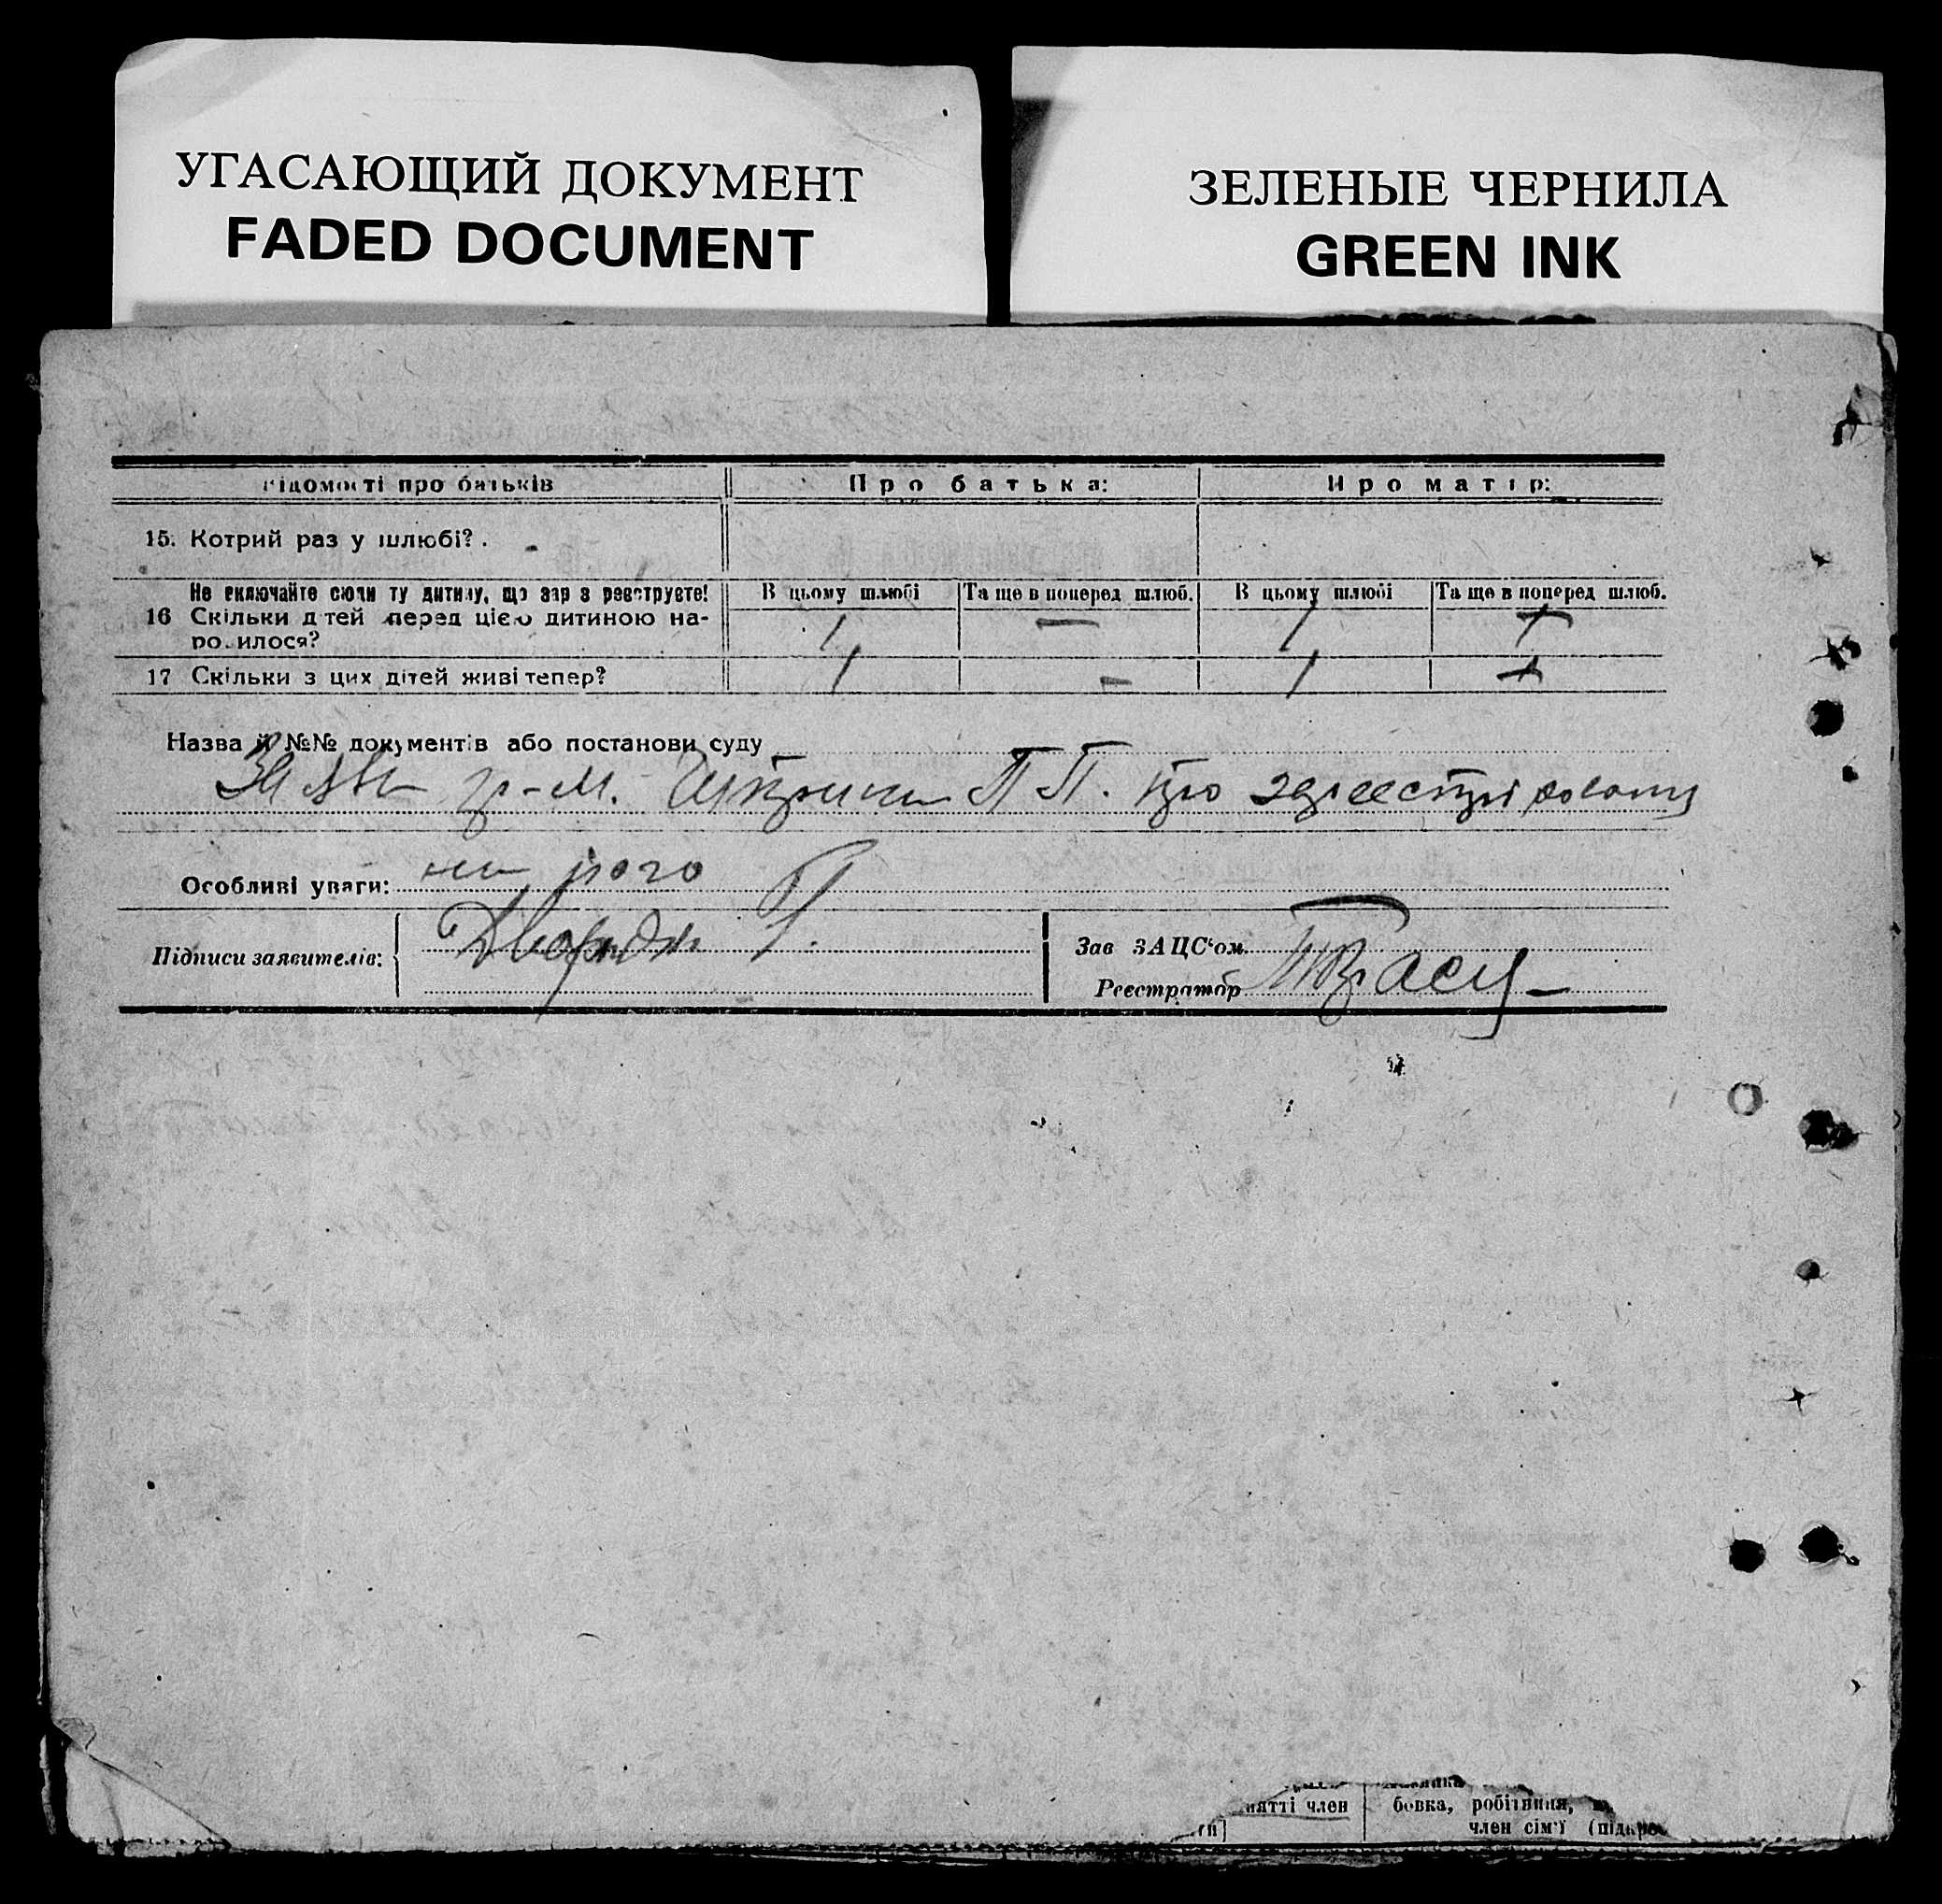 УГАСАЮЩИЙ ДОКУМЕНТ
FADED DOCUMENT
ЗЕЛЕНЫЕ ЧЕРНИЛА
GREEN INK
Відомості про батьків Про батька: Про матір:
15. Котрий раз у шлюбі?
Не включайте сюди ту дитину, що зараз реєструєте! В цьому шлюбі Та ще в поперед шлюб. В цьому шлюбі Та ще в поперед шлюб.
16 Скільки дітей перед цією дитиною на- 1 — 1
родилося?
17 Скільки з цих дітей живі тепер? 1 — 1
Назва й №№ документів або постанови суду
П П. про
Особливі уваги: на його
Підписи заявителів:
Зав ЗАЦС‘ом
Реєстратор
нятті член
бовка, робітниця,
член сім'ї